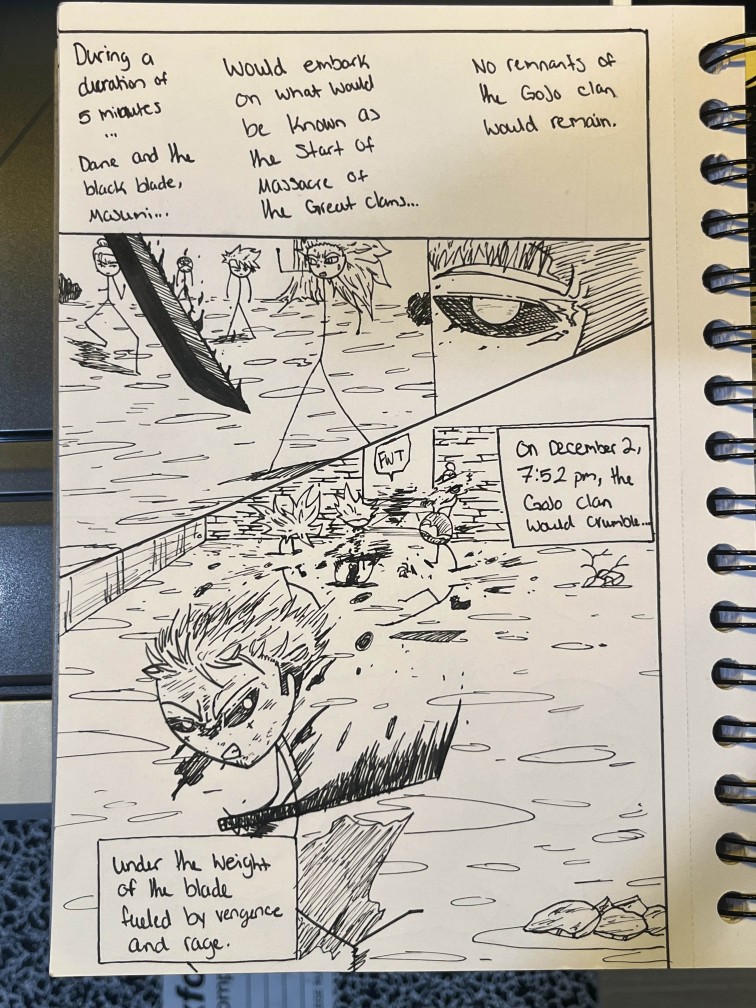 During a
duration of
5 minutes
...
Dane and the
black blade,
Masumi...
Would embark
on what would
be known as
the Start of
Massacre of
the Great clans...
No remnants of
the Gojo clan
would remain.
FWT
On December 2,
7:52 pm, the
Gojo clan
would crumble...
under the weight
of the blade
fueled by vengence
and rage.